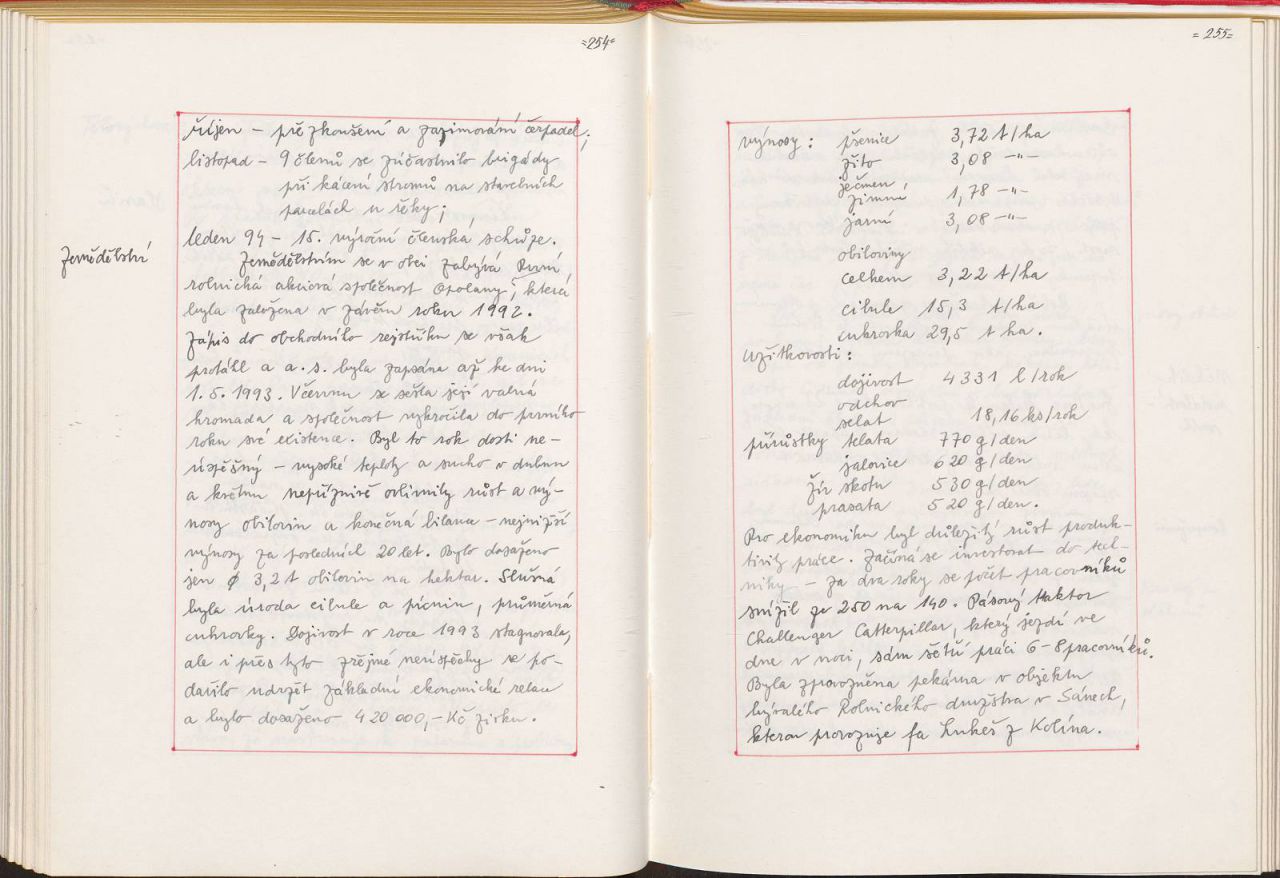 =254=
říjen – přezkoušení a zazimování čerpadel;
listopad – 9 členů se zúčastnilo brigády
při kácení stromů na stavebních
parcelách u řeky;
leden 94 – 15. výroční členská schůze.
Zemědělství
Zemědělstvím se v obci zabývá První
rolnická akciová společnost Opolany, která
byla založena v závěru roku 1992.
Zápis do obchodního rejstříku se však
protáhl a a.s. byla zapsána až ke dni
1.5.1993. V červnu se sešla její valná
hromada a společnost vykročila do prvního
roku své existence. Byl to rok dosti ne-
úspěšný – vysoké teploty a sucho v dubnu
a květnu nepříznivě ovlivnily růst a vý-
nosy obilovin a konečná bilance – nejnižší
výnosy za posledních 20 let. Bylo dosaženo
jen ø 3,2 t obilovin na hektar. Slušná
byla úroda cibule a pícnin, průměrná
cukrovky. Dojivost v roce 1993 stagnovala,
ale i přes tyto zřejmé neúspěchy se po-
dařilo udržet základní ekonomické relace
a bylo dosaženo 420 000,- Kč zisku.
=255=
výnosy: pšenice 3,72 t/ha
žito 3,08 –"–
ječmen,
zimní 1,78 –"–
jarní 3,08 –"–
obiloviny
celkem 3,22 t/ha
cibule 15,3 t/ha
cukrovka 29,5 t ha.
Užitkovosti:
dojivost 4331 l/rok
odchov
selat 18,16 ks/rok
přírůstky telata 770 g/den
jalovice 620 g/den
žír skotu 530 g/den
prasata 520 g/den.
Pro ekonomiku byl důležitý růst produk-
tivity práce. Začíná se investovat do tech-
niky – za dva roky se počet pracovníků
snížil ze 250 na 140. Pásový traktor
Challenger Catterpillar, který jezdí ve
dne v noci, sám šetří práci 6-8 pracovníků.
Byla zprovozněna pekárna v objektu
bývalého Rolnického družstva v Sánech,
kterou provozuje fa Lukeš z Kolína.